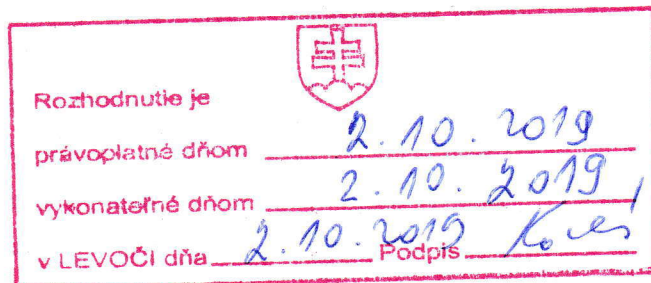 Rozhodnutie je
právoplatné dňom 2.10.2019
vykonateľné dňom 2.10.2019
v LEVOČI dňa 2.10.2019 Podpis